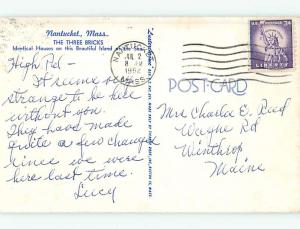 Nantucket, Mass.
THE THREE BRICKS
Identical Houses on this Beautiful Island
High Rd -
It seems so
strange to be here
without you.
They have made
quite a few changes
since we were
here last time.
Lucy
NANTUCKET
JUL 2
8 PM
MASS.
U.S. POSTAGE 3¢
LIBERTY
POST CARD
Mrs Charles E. Reed
Wayne Rd
Winthrop
Maine